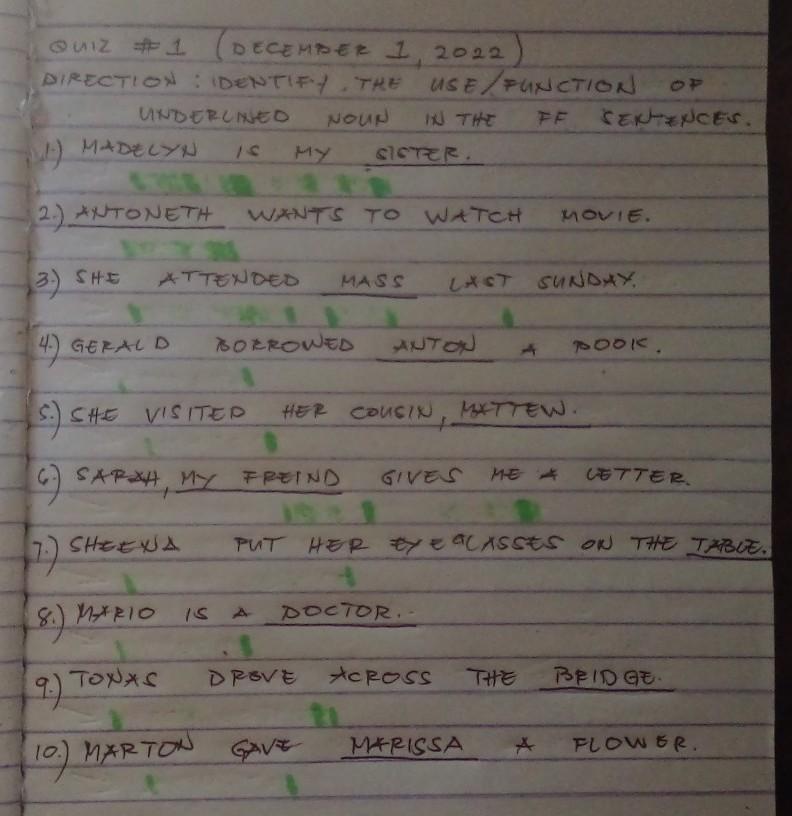 QUIZ #1 (DECEMBER 1, 2022)
DIRECTION : IDENTIFY THE USE/FUNCTION OF
UNDERLINED NOUN IN THE FF SENTENCES.
1.) MADELYN IS MY SISTER.
2.) ANTONETH WANTS TO WATCH MOVIE.
3.) SHE ATTENDED MASS LAST SUNDAY.
4.) GERALD BORROWED ANTON A BOOK.
5.) SHE VISITED HER COUSIN, MATTEW.
6.) SARAH, MY FREIND GIVES ME A LETTER.
7.) SHEENA PUT HER EYEGLASSES ON THE TABLE.
8.) MARIO IS A DOCTOR.
9.) TONAS DROVE ACROSS THE BRIDGE.
10.) MARTON GAVE MARISSA A FLOWER.